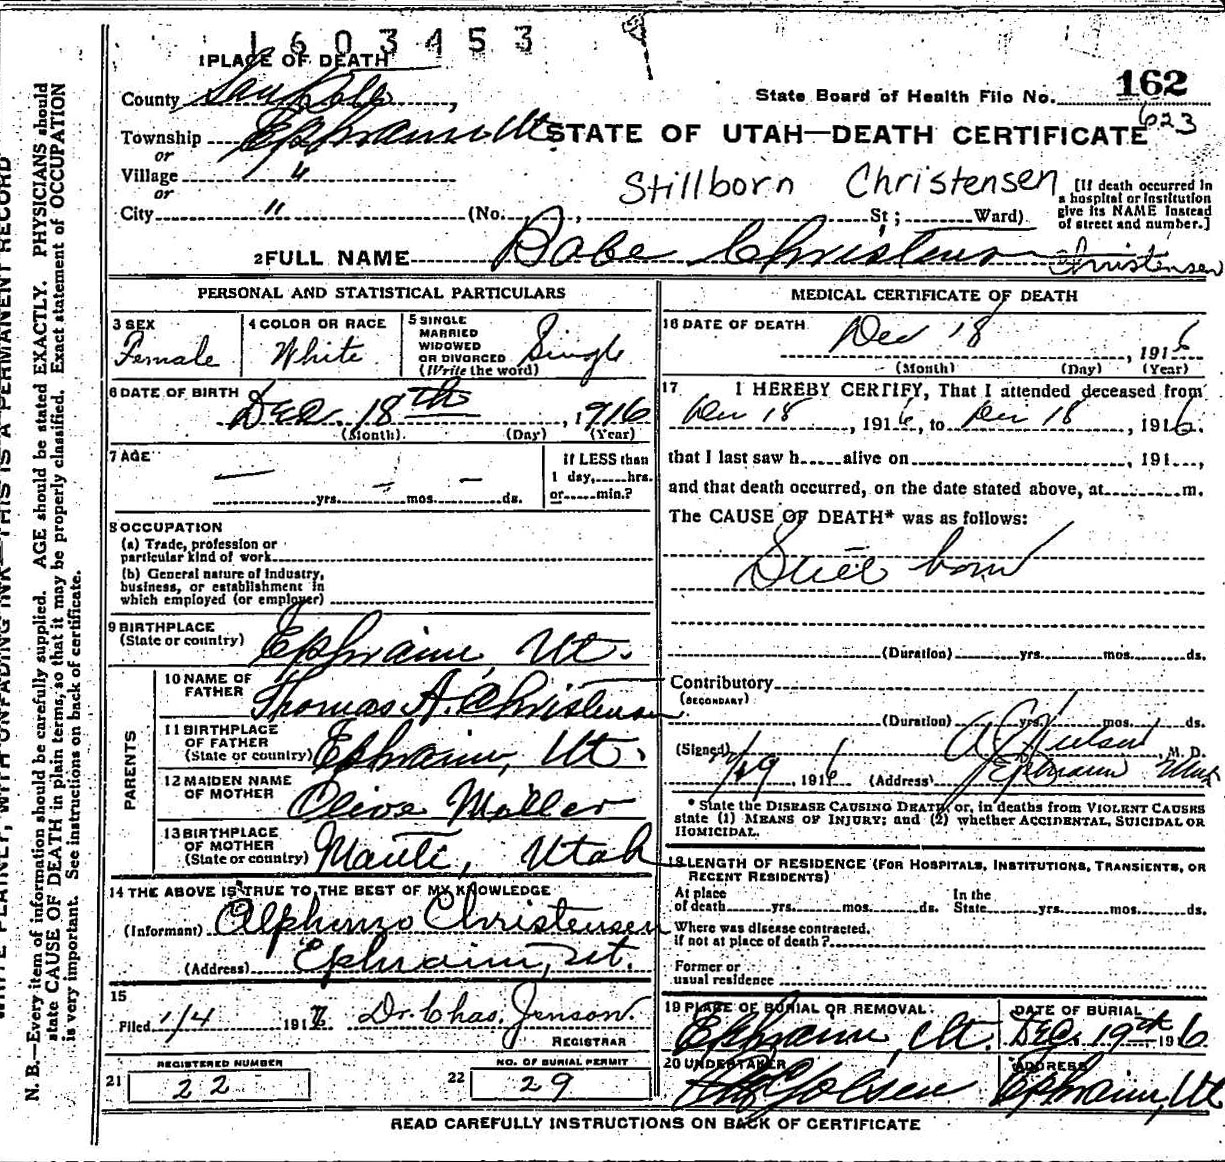 1603453
1 PLACE OF DEATH
County Sanpete
State Board of Health File No. 162
623
Township Ephraim Ut
STATE OF UTAH—DEATH CERTIFICATE
or
Village "
or
Stillborn Christensen
City " (No. , St; Ward)
[If death occurred in a hospital or institution give its NAME instead of street and number.]
2 FULL NAME Babe Christensen
Christensen
PERSONAL AND STATISTICAL PARTICULARS
3 SEX Female
4 COLOR OR RACE White
5 SINGLE MARRIED WIDOWED OR DIVORCED (Write the word) Single
6 DATE OF BIRTH Dec. 18th, 1916
(Month) (Day) (Year)
7 AGE — — —
yrs. mos. ds.
If LESS than 1 day, hrs. or min.?
8 OCCUPATION
(a) Trade, profession or
particular kind of work
(b) General nature of industry,
business, or establishment in
which employed (or employer)
9 BIRTHPLACE
(State or country) Ephraim, Ut.
PARENTS
10 NAME OF FATHER Thomas A. Christensen
11 BIRTHPLACE OF FATHER (State or country) Ephraim, Ut.
12 MAIDEN NAME OF MOTHER Olive Moller
13 BIRTHPLACE OF MOTHER (State or country) Manti, Utah
14 THE ABOVE IS TRUE TO THE BEST OF MY KNOWLEDGE
(Informant) Alphonzo Christensen
(Address) Ephraim, Ut.
15
Filed 1/4 1917 Dr. Chas. Jenson.
REGISTRAR
REGISTERED NUMBER
21 22
NO. OF BURIAL PERMIT
22 29
MEDICAL CERTIFICATE OF DEATH
16 DATE OF DEATH Dec 18, 1916
(Month) (Day) (Year)
17 I HEREBY CERTIFY, That I attended deceased from
Dec 18, 1916, to Dec 18, 1916.
that I last saw h alive on , 191 ,
and that death occurred, on the date stated above, at m.
The CAUSE OF DEATH* was as follows:
Still born
(Duration) yrs. mos. ds.
Contributory
(SECONDARY)
(Duration) yrs. mos. ds.
(Signed) M. D.
1916 (Address) Ephraim Utah
* State the DISEASE CAUSING DEATH, or, in deaths from VIOLENT CAUSES
state (1) MEANS OF INJURY; and (2) whether ACCIDENTAL, SUICIDAL OR
HOMICIDAL.
18 LENGTH OF RESIDENCE (FOR HOSPITALS, INSTITUTIONS, TRANSIENTS, OR
RECENT RESIDENTS)
At place of death yrs. mos. ds. In the State yrs. mos. ds.
Where was disease contracted,
if not at place of death?
Former or
usual residence
19 PLACE OF BURIAL OR REMOVAL Ephraim, Ut.
DATE OF BURIAL Dec. 19th 1916
20 UNDERTAKER Olsen
ADDRESS Ephraim, Ut
READ CAREFULLY INSTRUCTIONS ON BACK OF CERTIFICATE
WRITE PLAINLY, WITH UNFADING INK—THIS IS A PERMANENT RECORD
N. B.—Every item of information should be carefully supplied. AGE should be stated EXACTLY. PHYSICIANS should
state CAUSE OF DEATH in plain terms, so that it may be properly classified. Exact statement of OCCUPATION
is very important. See instructions on back of certificate.